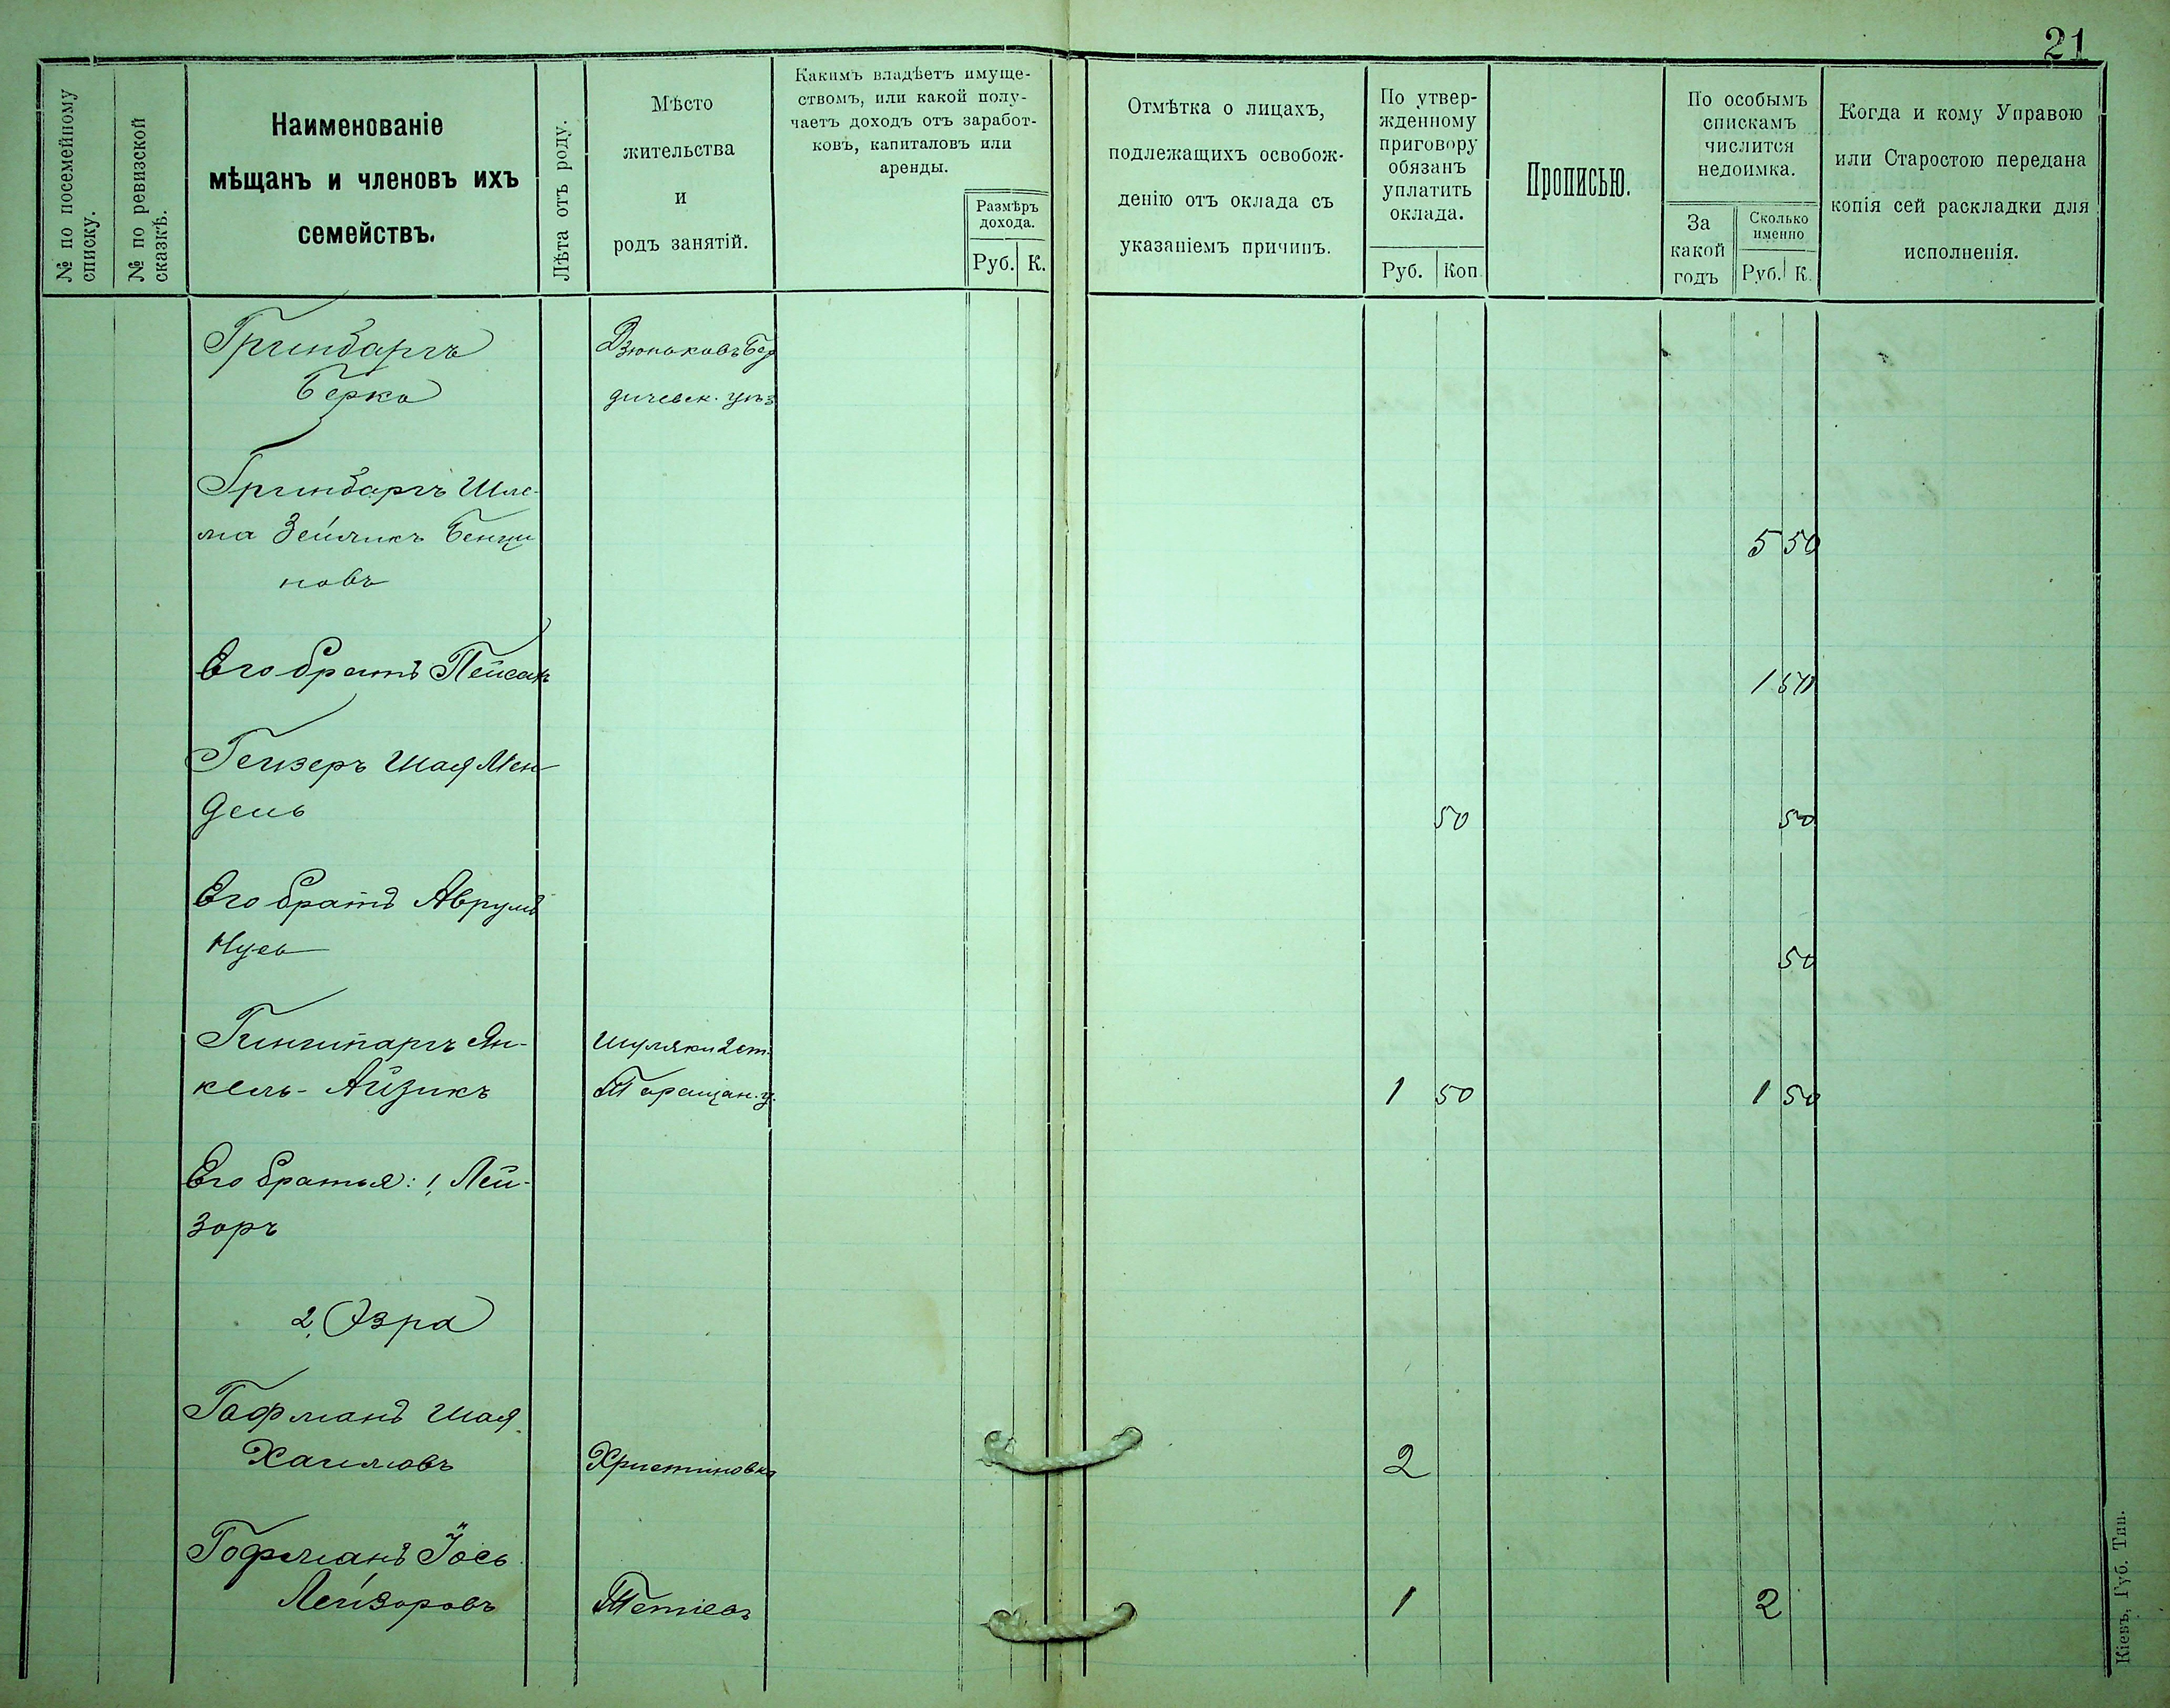 21
№ по посемейному
списку.
№ по ревизской
сказкѣ.
Наименованіе
мѣщанъ и членовъ ихъ
семействъ.
Лѣта отъ роду.
Мѣсто
жительства
и
родъ занятій.
Какимъ владѣетъ имуще-
ствомъ, или какой полу-
чаетъ доходъ отъ заработ-
ковъ, капиталовъ или
аренды.
Размѣръ
дохода.
Руб. К.
Отмѣтка о лицахъ,
подлежащихъ освобож-
денію отъ оклада съ
указаніемъ причинъ.
По утвер-
жденному
приговору
обязанъ
уплатить
оклада.
Руб. Коп.
Прописью.
По особымъ
спискамъ
числится
недоимка.
За
какой
годъ
Сколько
именно
Руб. К.
Когда и кому Управою
или Старостою передана
копія сей раскладки для
исполненія.
Гринбаргъ Дзюньковъ Бер
Берко дичевск. уѣз
Гринбаргъ Шле-
ма Зейликъ Бенци 5 50
новъ
Его братъ Пейсахъ 1 50
Гейзеръ Шая Мен
дель 50 50
Его братъ Аврумъ
Нусь 50
Гинтпаргъ Ян- Шуляки 2 ст.
кель-Айзикъ Таращан. у. 1 50 1 50
Его братья: 1, Лей-
зоръ
2, Азра
Гофманъ Шая
Хаимовъ Христиновка 2
Гофманъ Іось
Лейзоровъ Тетіевъ 1 2
Кіевъ, Губ. Тип.